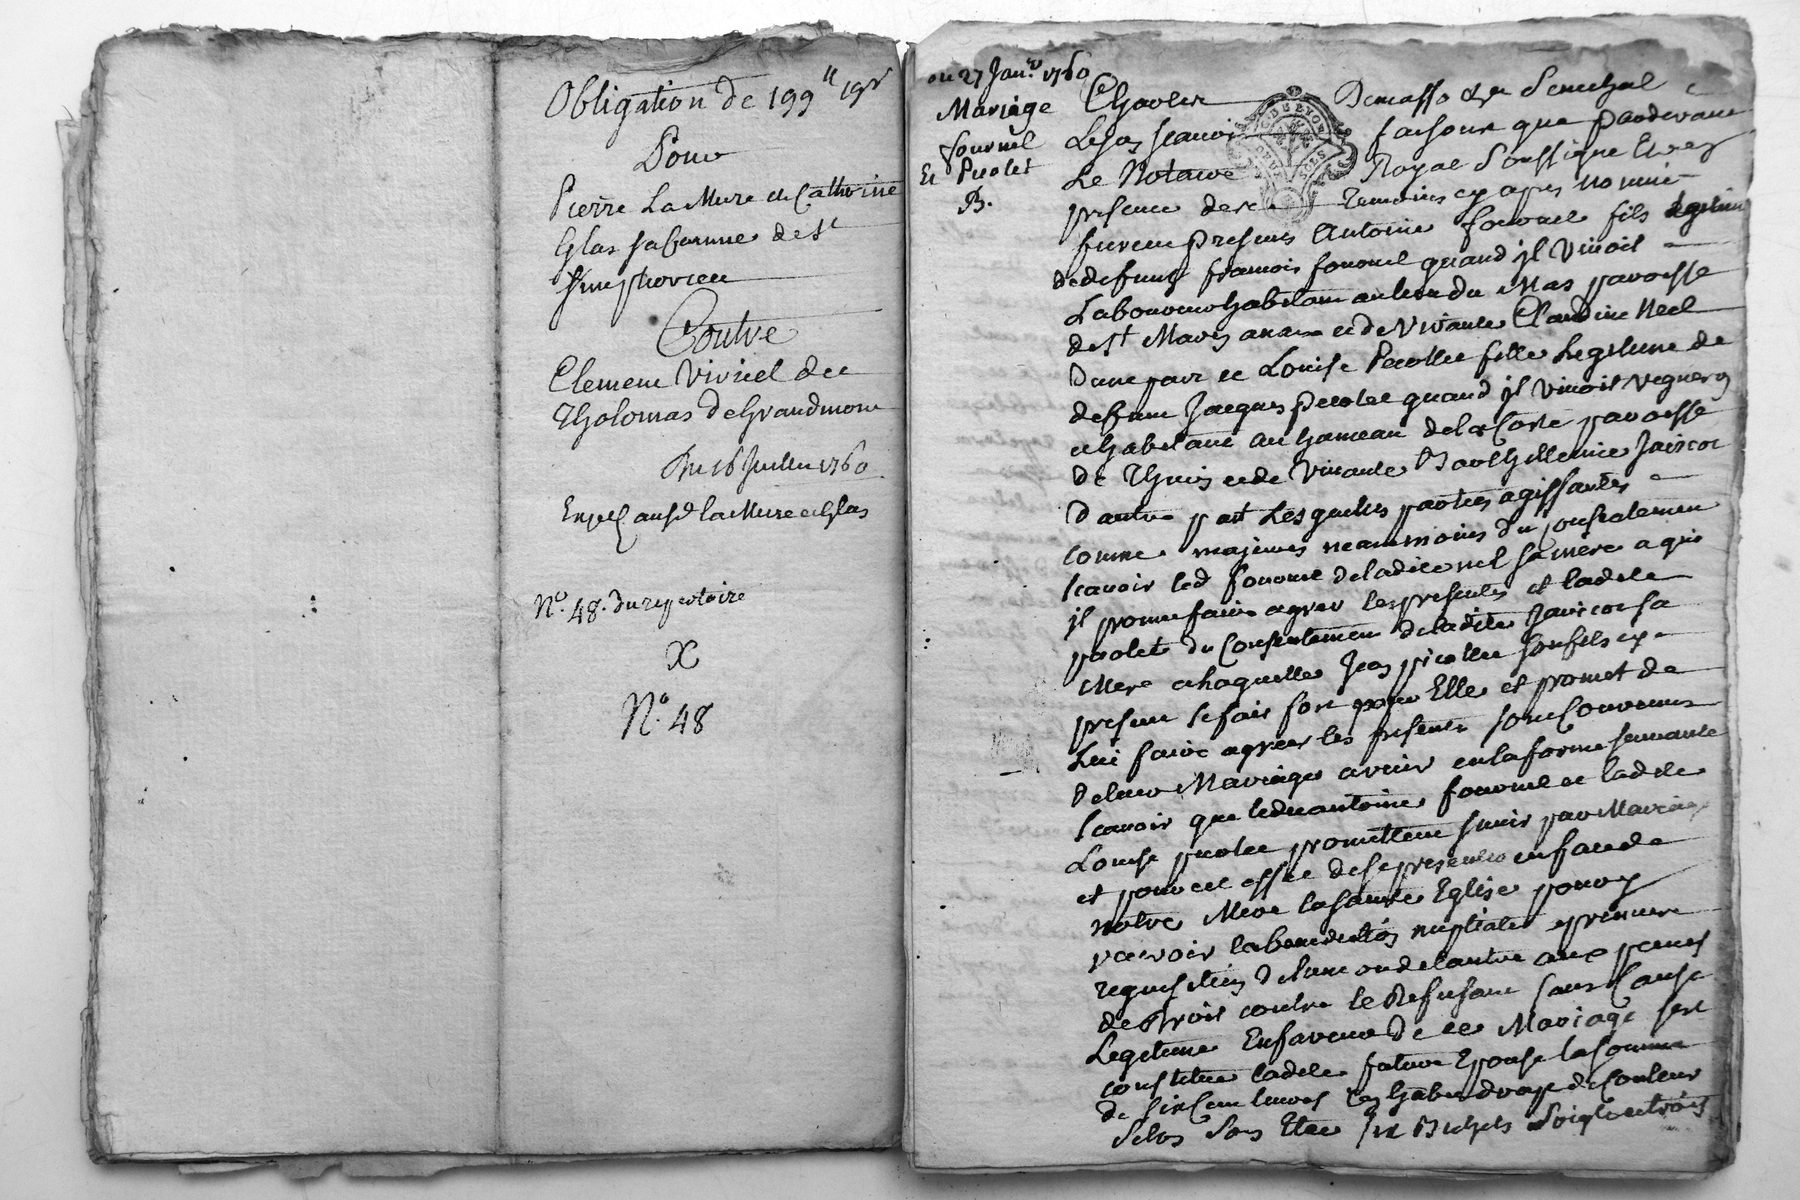 Obligation de 199ll 19s
Pour
Pierre La Mure et Catherine
Glas sa femme de St
Simphorien
Contre
Clement Viviel de
Tholomas de Grandmont
Du 16 Juillet 1760
Exped aux d la Mure et Glas
No. 48. du repertoire
X
No. 48
du 27 Janr 1760
Mariage
fournel
Et Picolet
B.
Charles Demasso Senechal
Lyon scavoir faisons que pardevant
Le Notaire Royal Soussigné Et en
presence des temoins cy apres nommé
furent presents Antoine fournel fils legitime
de defunt francois fournel quand jl vivoit
Laboureur habitant au lieu du Mas paroisse
de St et de Vivante Claudine Neel
d'une part et Louise Picollet fille Legitime de
defunt Jacques picolet quand jl vivoit vigneron
et habitant au hameau de la Coste paroisse
de Thuis et de Vivante
d'autre part Lesquelles parties agissantes
comme majeures neanmoins du consentement
scavoir led fournel de ladite nel sa mere a qui
jl promet faire agreer les presentes et ladite
picolet du Consentement de ladite sa
Mere a laquelle Jean picollet son fils cy
present se fait fort pour Elle et promet de
Lui faire agreer les presentes sont Convenus
de leur Mariage avenir en la forme suivante
scavoir que ledit antoine fournel et ladite
Louise picolet promettent s'unir par Mariage
et pour cet effet de se presenter en face de
notre Mere la sainte Eglise pour y
recevoir la benediction nuptiale a premiere
requisition de l'une ou de l'autre aux peines
de Droit contre le Refusant sans Cause
Legitime En faveur de ce Mariage s'est
constituée ladite future Epouse la somme
de six cent livres un habit drap de Couleur
selon son Etat six Bichets soigle et trois